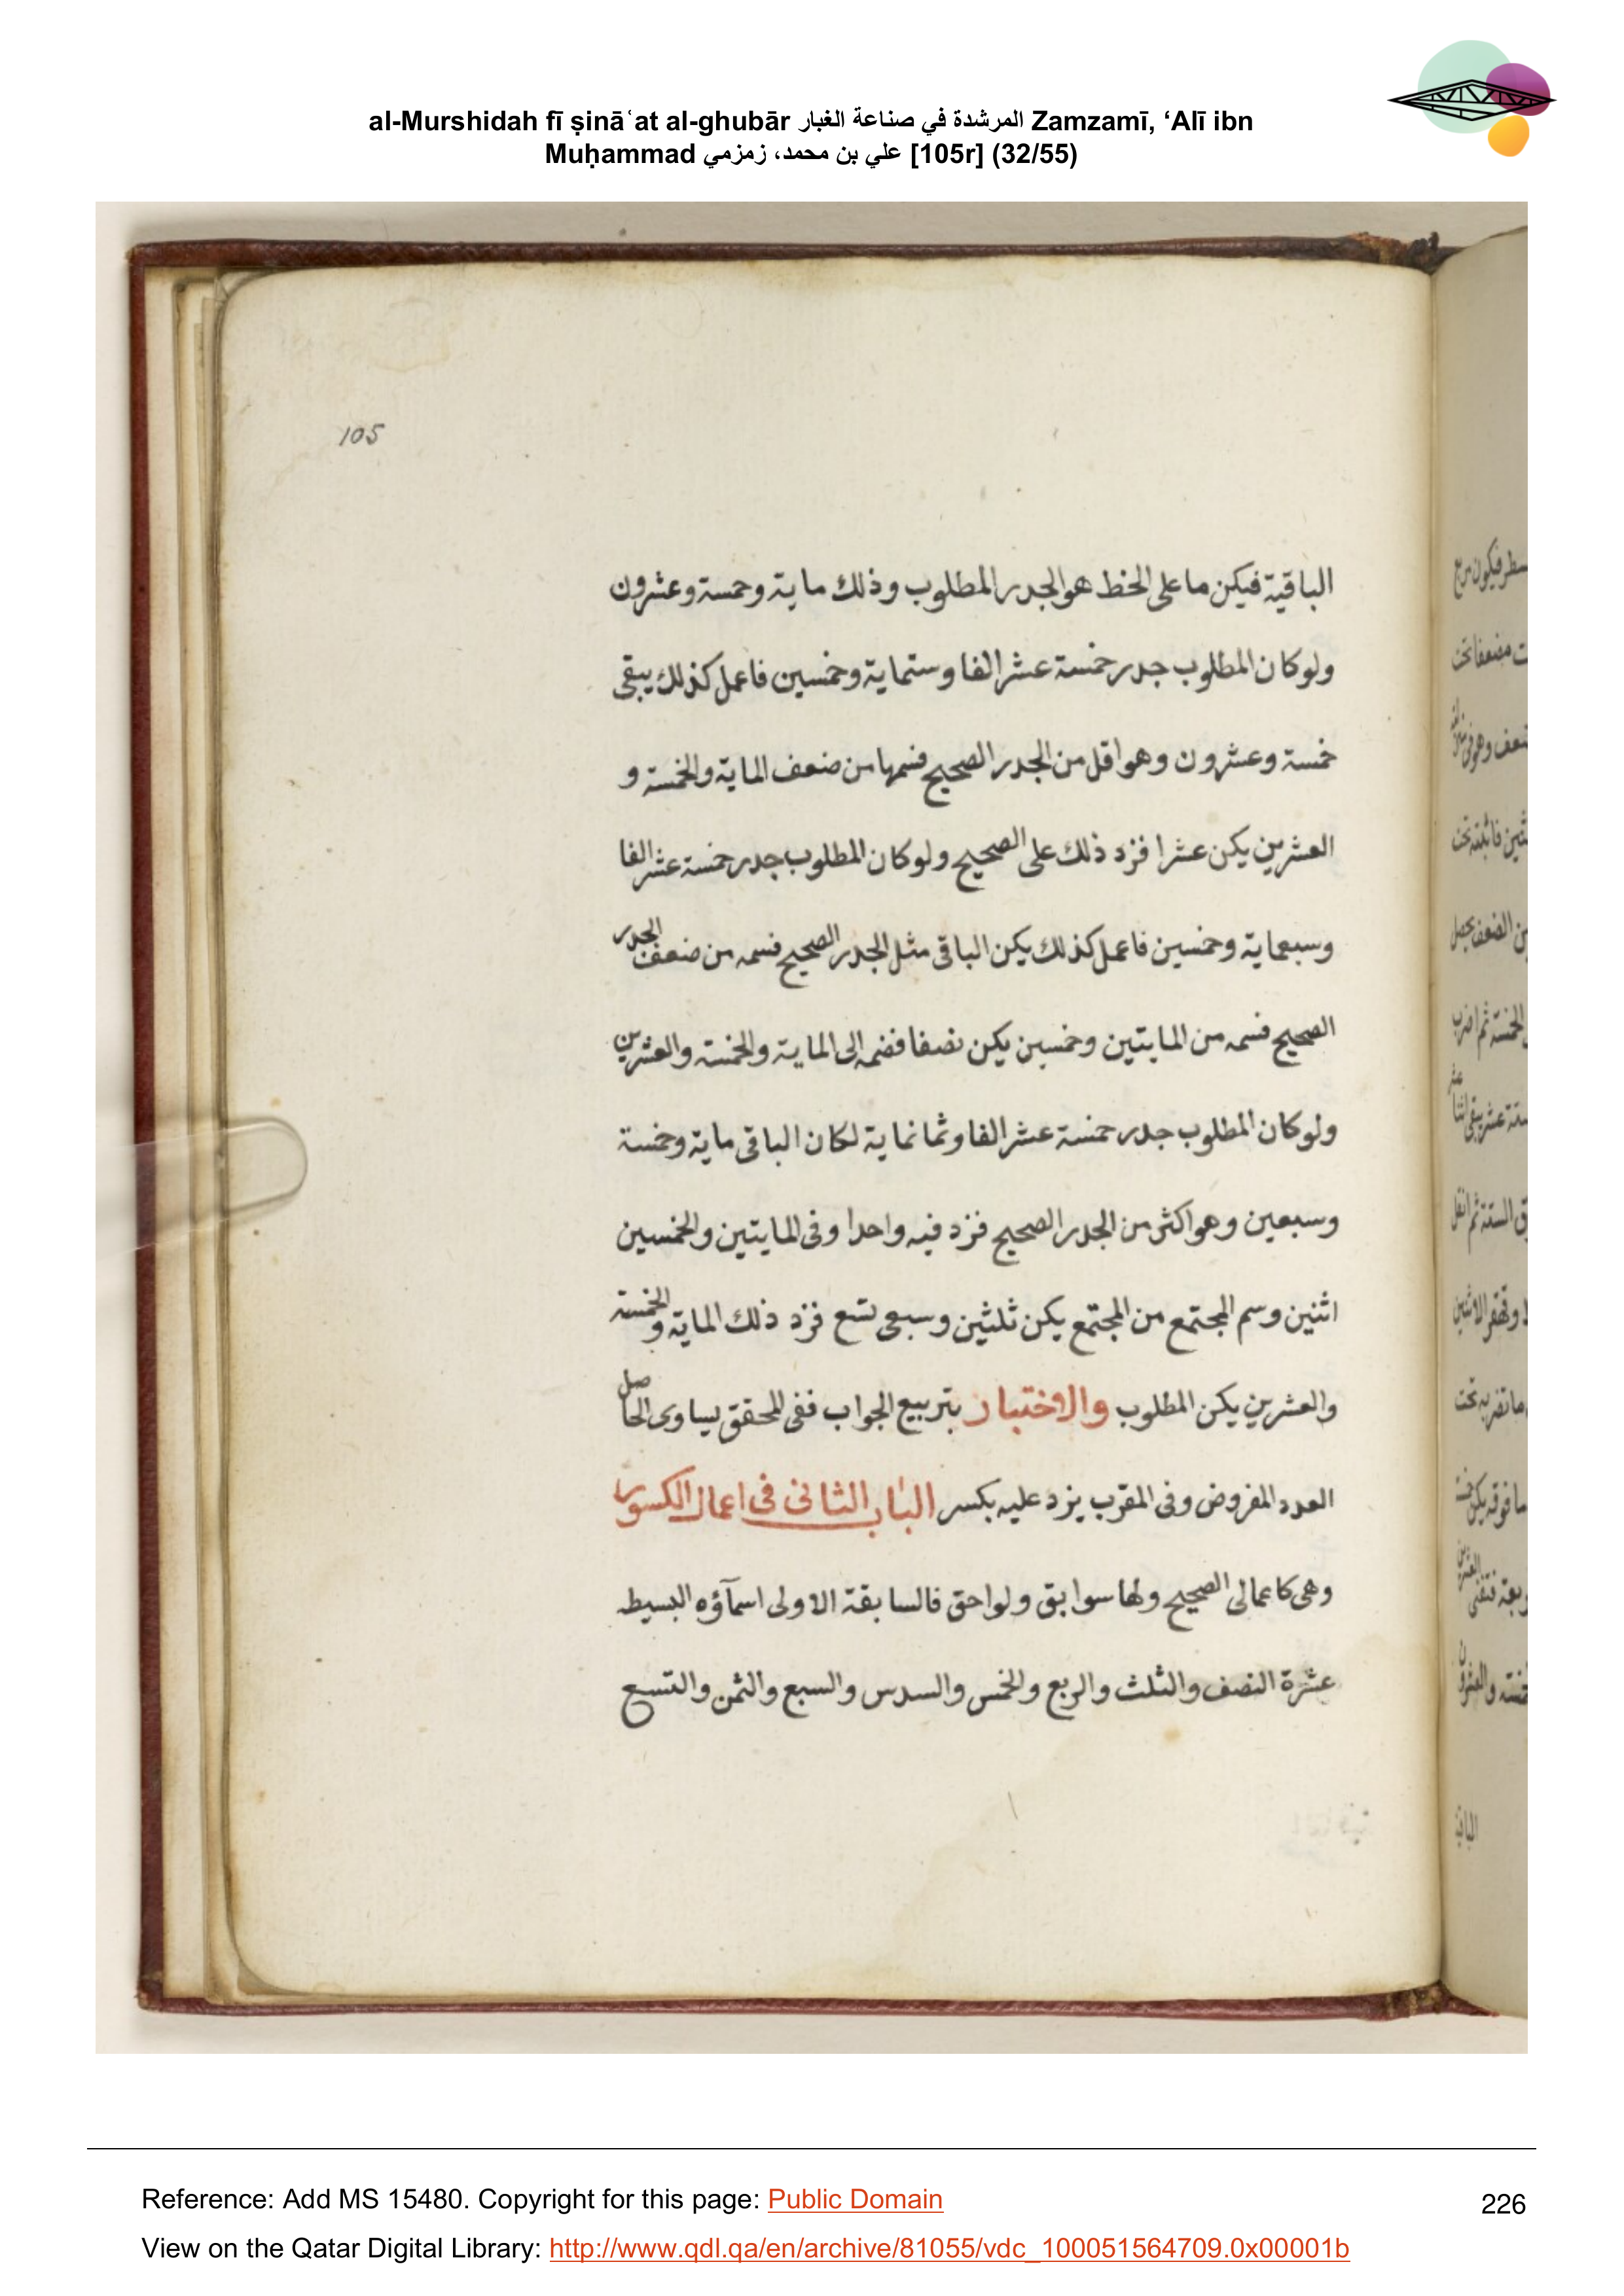 al-Murshidah fī ṣināʿat al-ghubār المرشدة في صناعة الغبار Zamzamī, ‘Alī ibn
Muḥammad علي بن محمد، زمزمي [105r] (32/55)
105
الباقية فيكن ما على الخط هو الجدر المطلوب وذلك ماية وخمسة وعشرون
ولو كان المطلوب جدر خمسة عشر الفا وستماية وخمسين فاعمل كذلك يبقى
خمسة وعشرون وهو اقل من الجدر الصحيح فسمها من ضعف الماية والخمسة و
العشرين يكن عشرا فزد ذلك على الصحيح ولو كان المطلوب جدر خمسة عشر الفا
وسبعماية وخمسين فاعمل كذلك يكن الباقى مثل الجدر الصحيح فسمه من ضعف الجدر
الصحيح فسمه من المايتين وخمسين يكن نصفا فضمه الى الماية والخمسة والعشرين
ولو كان المطلوب جدر خمسة عشر الفا وثمانماية لكان الباقى ماية وخمسة
وسبعين وهو اكثر من الجدر الصحيح فزد فيه واحدا وفى المايتين والخمسين
اثنين وسم المجتمع من المجتمع يكن ثلثين وسبعى تسع فزد ذلك الماية والخمسة
والعشرين يكن المطلوب والاختبار بتربيع الجواب ففى المحقق يساوى الحاصل
العدد المفروض وفى المقرب يزد عليه بكسر الباب الثانى فى اعمال الكسور
وهى كاعمالى الصحيح ولها سوابق ولواحق فالسابقة الاولى اسمآؤه البسيطه
عشرة النصف والثلث والربع والخمس والسدس والسبع والثمن والتسع
Reference: Add MS 15480. Copyright for this page: Public Domain
226
View on the Qatar Digital Library: http://www.qdl.qa/en/archive/81055/vdc_100051564709.0x00001b